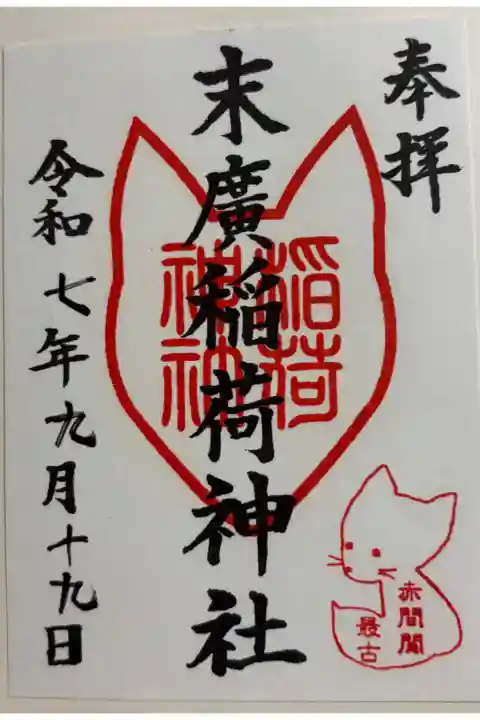 奉拝
末廣稲荷神社
稲荷
令和七年九月十九日
赤間関
最古